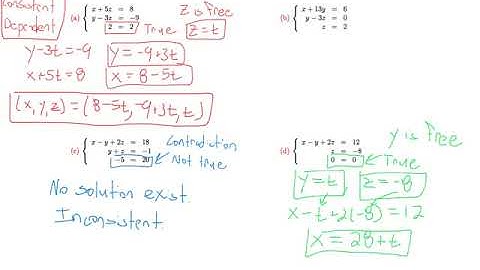 Consistent
Dependent
(a) { x + 5z = 8
y - 3z = -9
2 = 2
True
z is free
z = t
y-3t = -9
y = -9+3t
x+5t = 8
x = 8-5t
(x,y,z) = (8-5t, -9+3t, t)
(b) { x + 13y = 6
y - 3z = 0
z = 2
(c) { x - y + 2z = 18
y + z = -1
-5 = 20
Contradiction
Not true
No solution exist.
Inconsistent.
(d) { x - y + 2z = 12
z = -8
0 = 0
y is free
True
y = t
z = -8
x - t + 2(-8) = 12
x = 28 + t